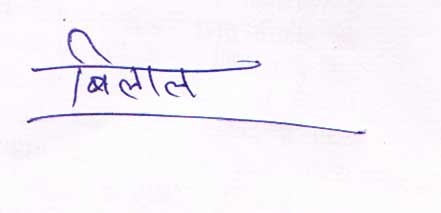 बिलाल